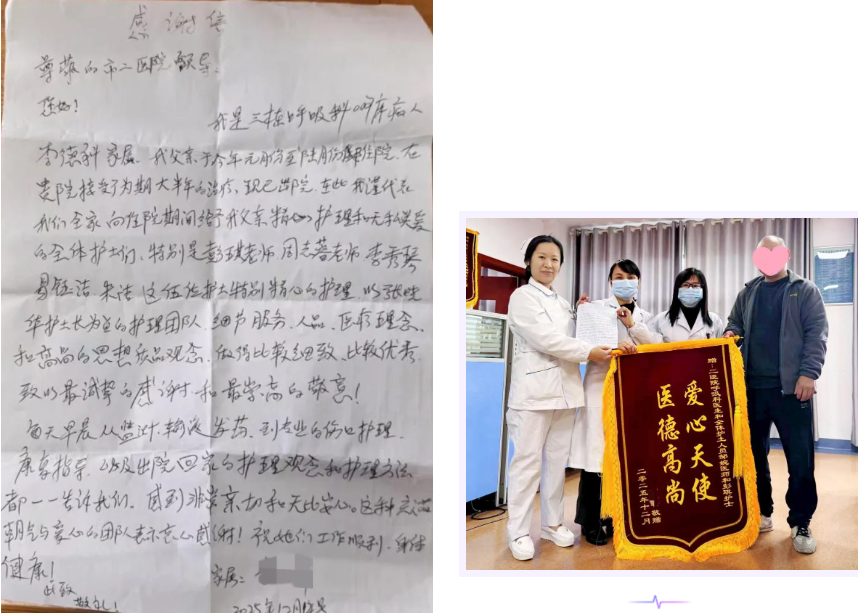 感谢信
尊敬的市二医院领导:
您好!
我是三楼呼吸科 床病人
李德科家属。我父亲于今年元月份至陆月份 住院,在
贵院接受了为期大半年的治疗,现已出院。在此我谨代表
我们全家向住院期间给予我父亲精心护理和无私关爱
的全体护士们、特别是彭琪老师 周志蓉老师 李秀琴
易钰洁 朱洁 这伍位护士特别精心的护理,以张
华护士长为首的护理团队,细节服务、人品、医疗理念、
和高尚的思想 品观念,做得比较细致、比较优秀
致以最诚挚的感谢和最崇高的敬意!
每天早晨从监测、输液、发药、到专业的伤口护理、
康复指导、以及出院回家的护理观念和护理方法
都一一告诉我们。感到非常亲切和无比安心,这种
朝气与爱心的团队表示衷心感谢!祝她们工作顺利、身体
健康!
家属:
此致
敬礼!
2025年12月
赠:二医院呼吸科医生和全体护士人员 医师和彭琪护士
爱心天使
医德高尚
敬赠
二零二五年十二月